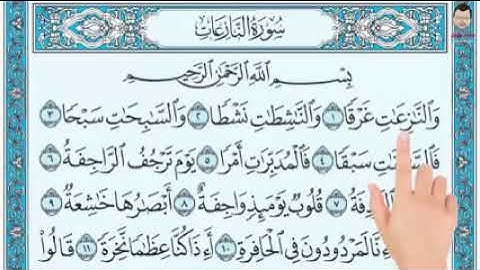 سُورَةُ النَّازِعَاتِ
بِسْمِ اللَّهِ الرَّحْمَٰنِ الرَّحِيمِ
وَالنَّازِعَاتِ غَرْقًا ١ وَالنَّاشِطَاتِ نَشْطًا ٢ وَالسَّابِحَاتِ سَبْحًا ٣
فَالسَّابِقَاتِ سَبْقًا ٤ فَالْمُدَبِّرَاتِ أَمْرًا ٥ يَوْمَ تَرْجُفُ الرَّاجِفَةُ ٦
ٱلرَّادِفَةُ ٧ قُلُوبٌ يَوْمَئِذٍ وَاجِفَةٌ ٨ أَبْصَارُهَا خَاشِعَةٌ ٩
لَمَرْدُودُونَ فِي الْحَافِرَةِ ١٠ أَءِذَا كُنَّا عِظَامًا نَّخِرَةً ١١ قَالُوا